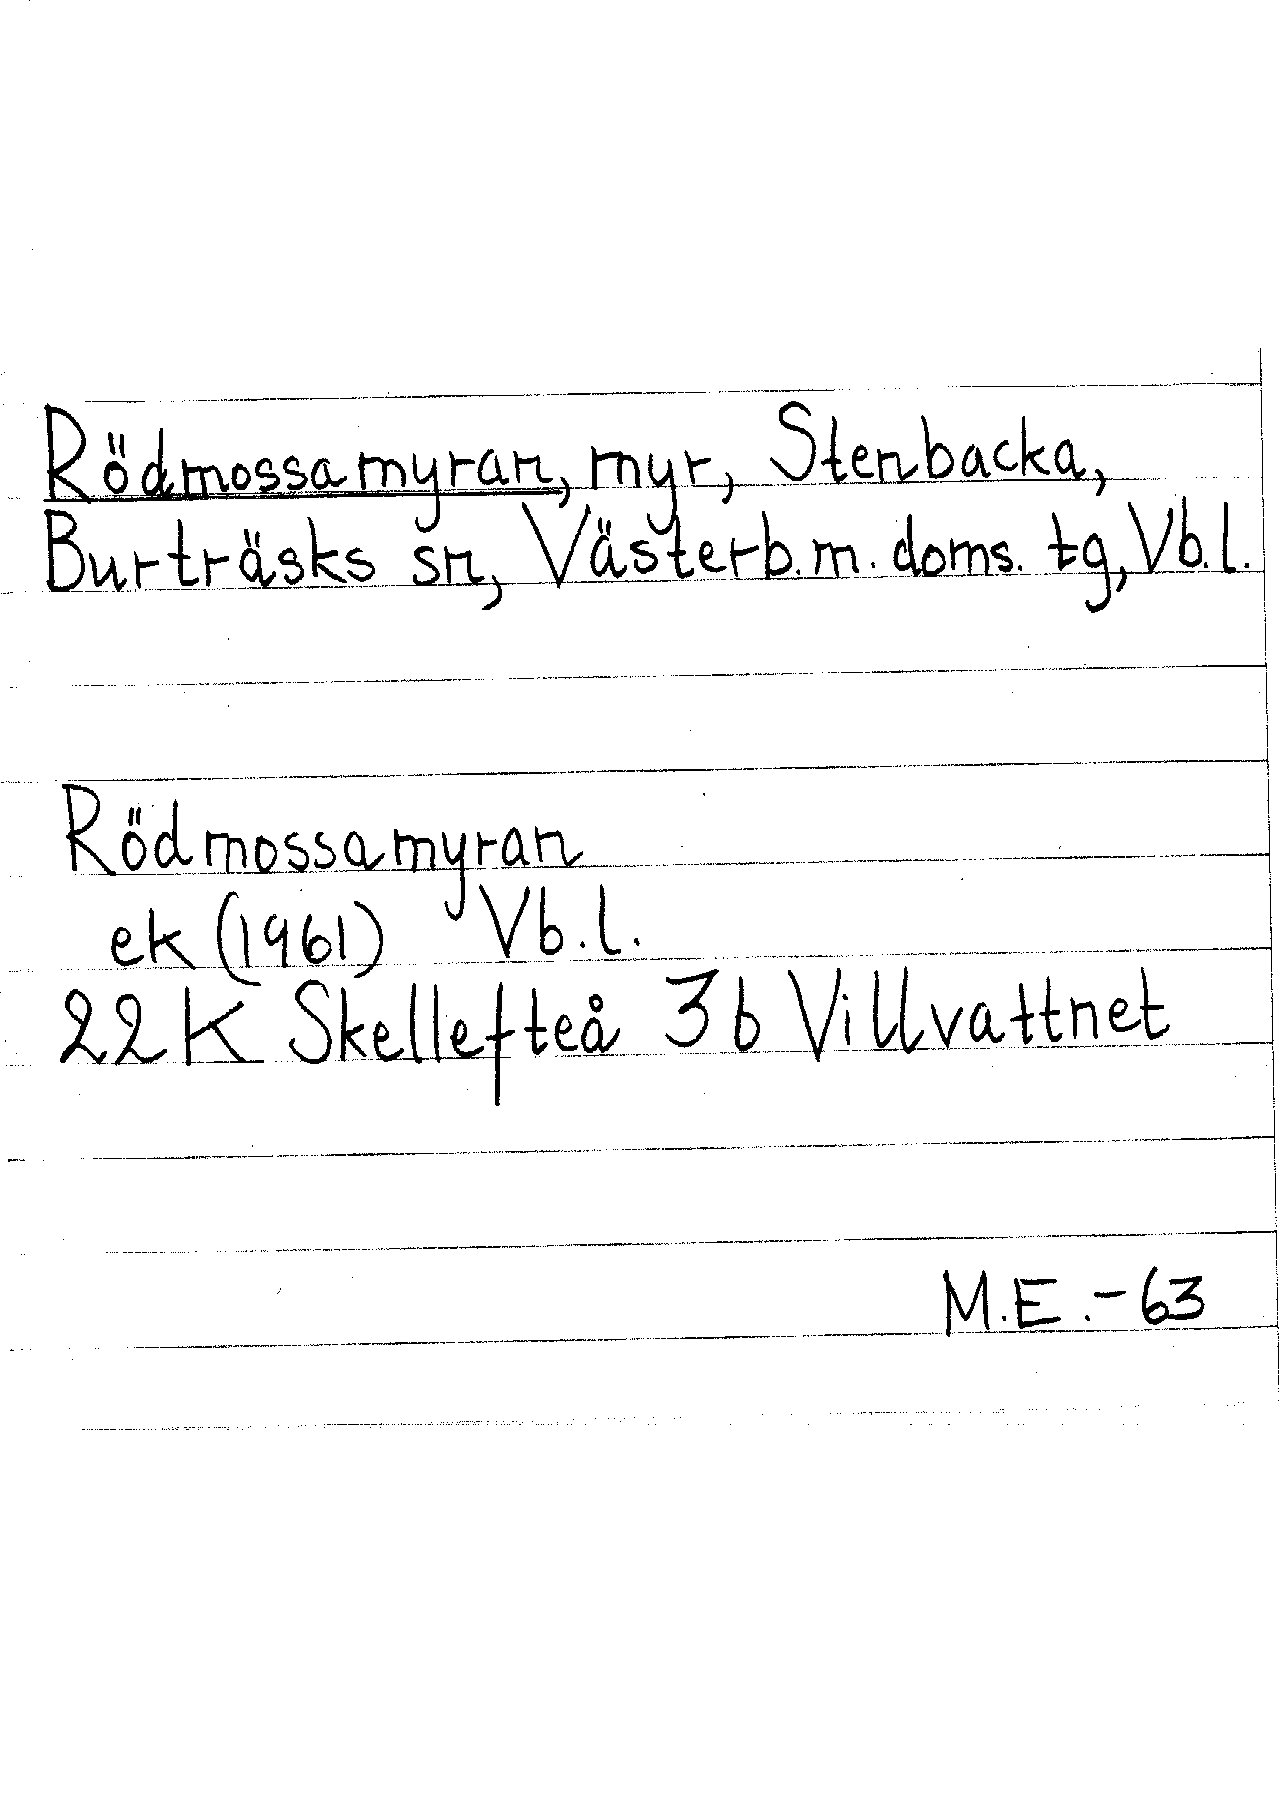 Rödmossamyran, myr, Stenbacka,
Burträsks sn, Västerb.m. doms. tg, Vb.l.
Rödmossamyran
ek (1961) Vb.l.
22K Skellefteå 3b Villvattnet
M.E.-63